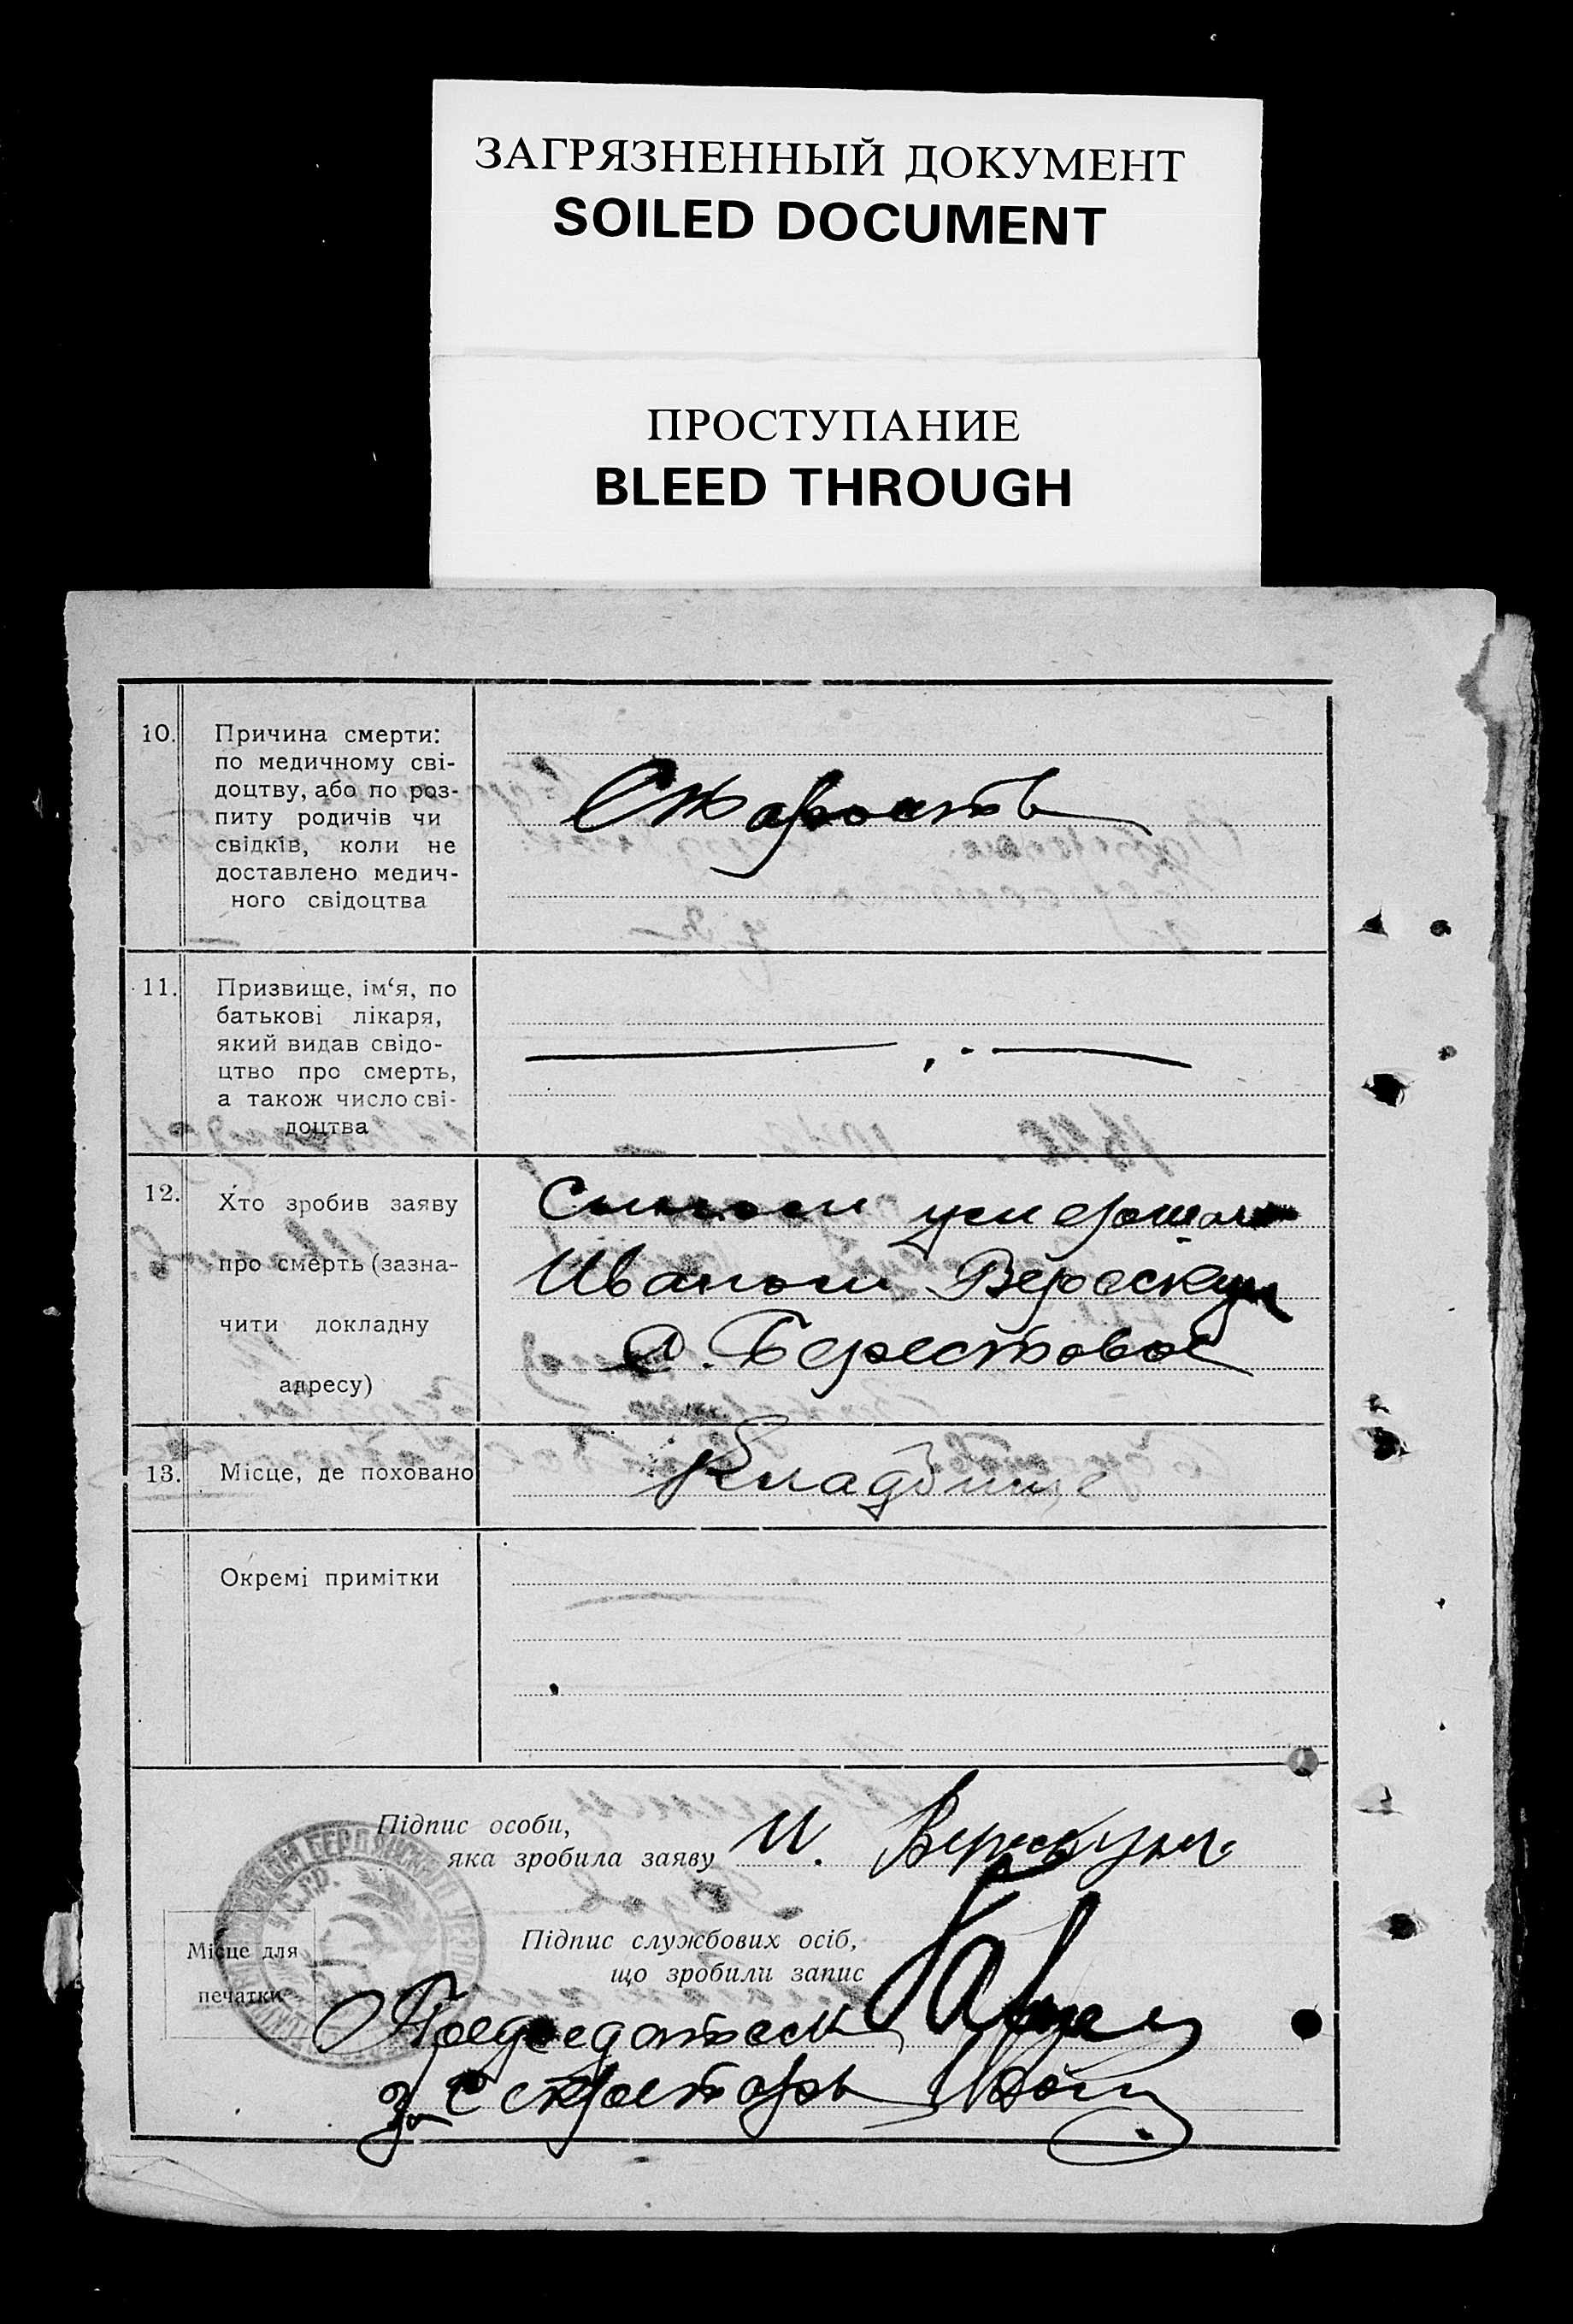 ЗАГРЯЗНЕННЫЙ ДОКУМЕНТ
SOILED DOCUMENT
ПРОСТУПАНИЕ
BLEED THROUGH
10. Причина смерти:
по медичному сві-
доцтву, або по роз-
питу родичів чи
свідків, коли не
доставлено медич-
ного свідоцтва
Старость
11. Призвище, ім‘я, по
батькові лікаря,
який видав свідо-
цтво про смерть,
а також число сві-
доцтва
12. Хто зробив заяву
про смерть (зазна-
чити докладну
адресу)
Сыном
Иваном
с. Берестовое
13. Місце, де поховано
Кладбище
Окремі примітки
Підпис особи,
яка зробила заяву И.
Підпис службових осіб,
що зробили запис
Місце для
печатки
Председатель
За Секретарь